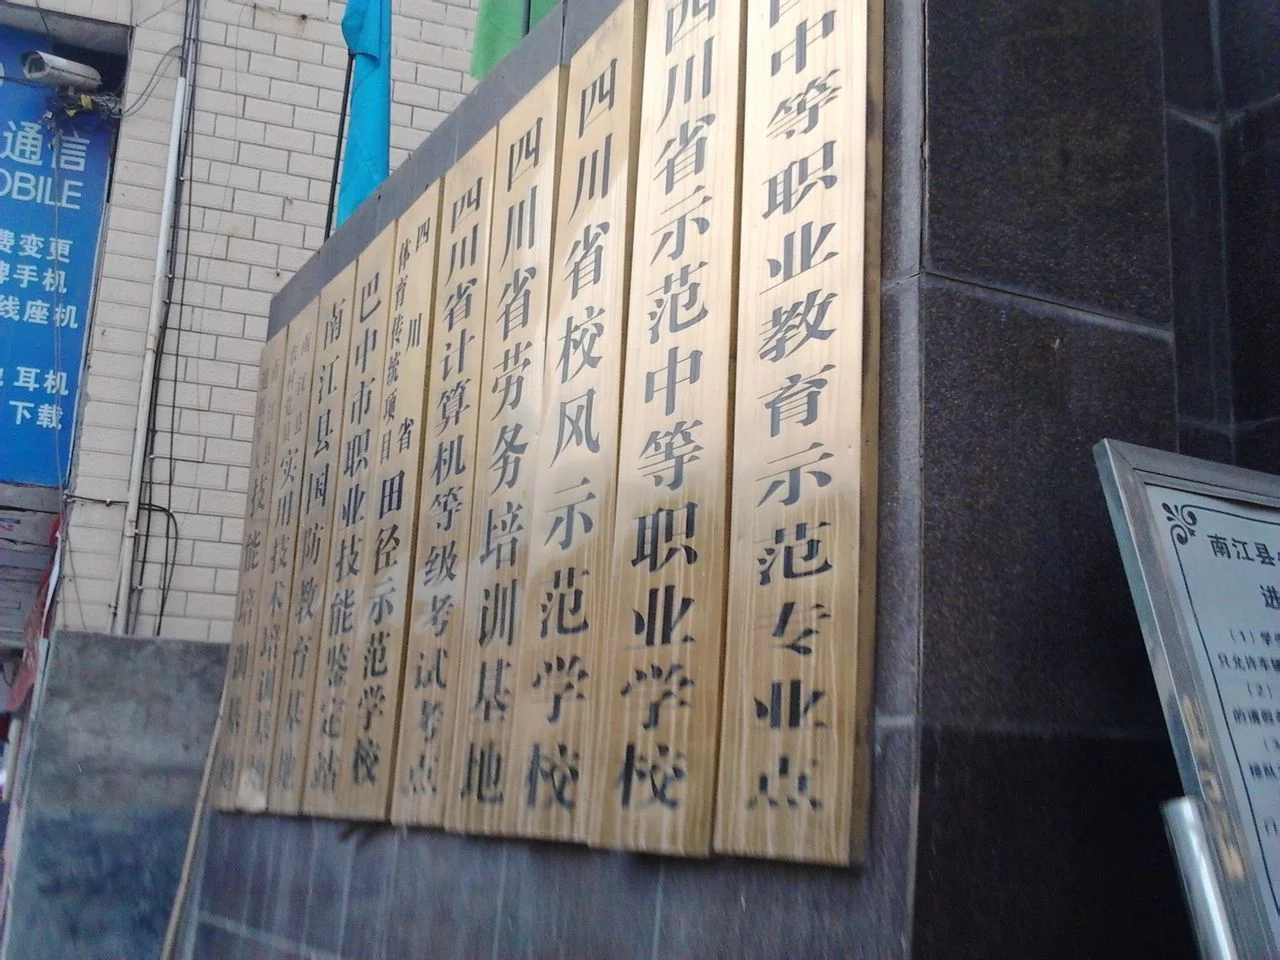 通信
OBILE
费变更
手机
线座机
耳机
下载
中等职业教育示范专业点
四川省示范中等职业学校
四川省校风示范学校
四川省劳务培训基地
四川省计算机等级考试考点
四川省
体育传统项目
田径示范学校
巴中市职业技能鉴定站
南江县国防教育基地
南江县
农村党员
实用技术培训基地
技能培训基地
南江县
进
(1)学
只允许车辆
(2)
的请假